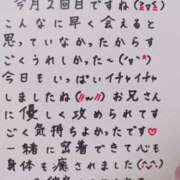 今月2回目ですね(≧▽≦)
こんなに早く会えると
思っていなかったから
ごくうれしかし〜(^▽^*)
今日もいっぱいイチャイチャ
しましたね(〃ω〃)お兄さん
に優しく攻められてす
ごく気持ちよかったです♥
一緒に密着できて心も
身体も癒されました(^^)